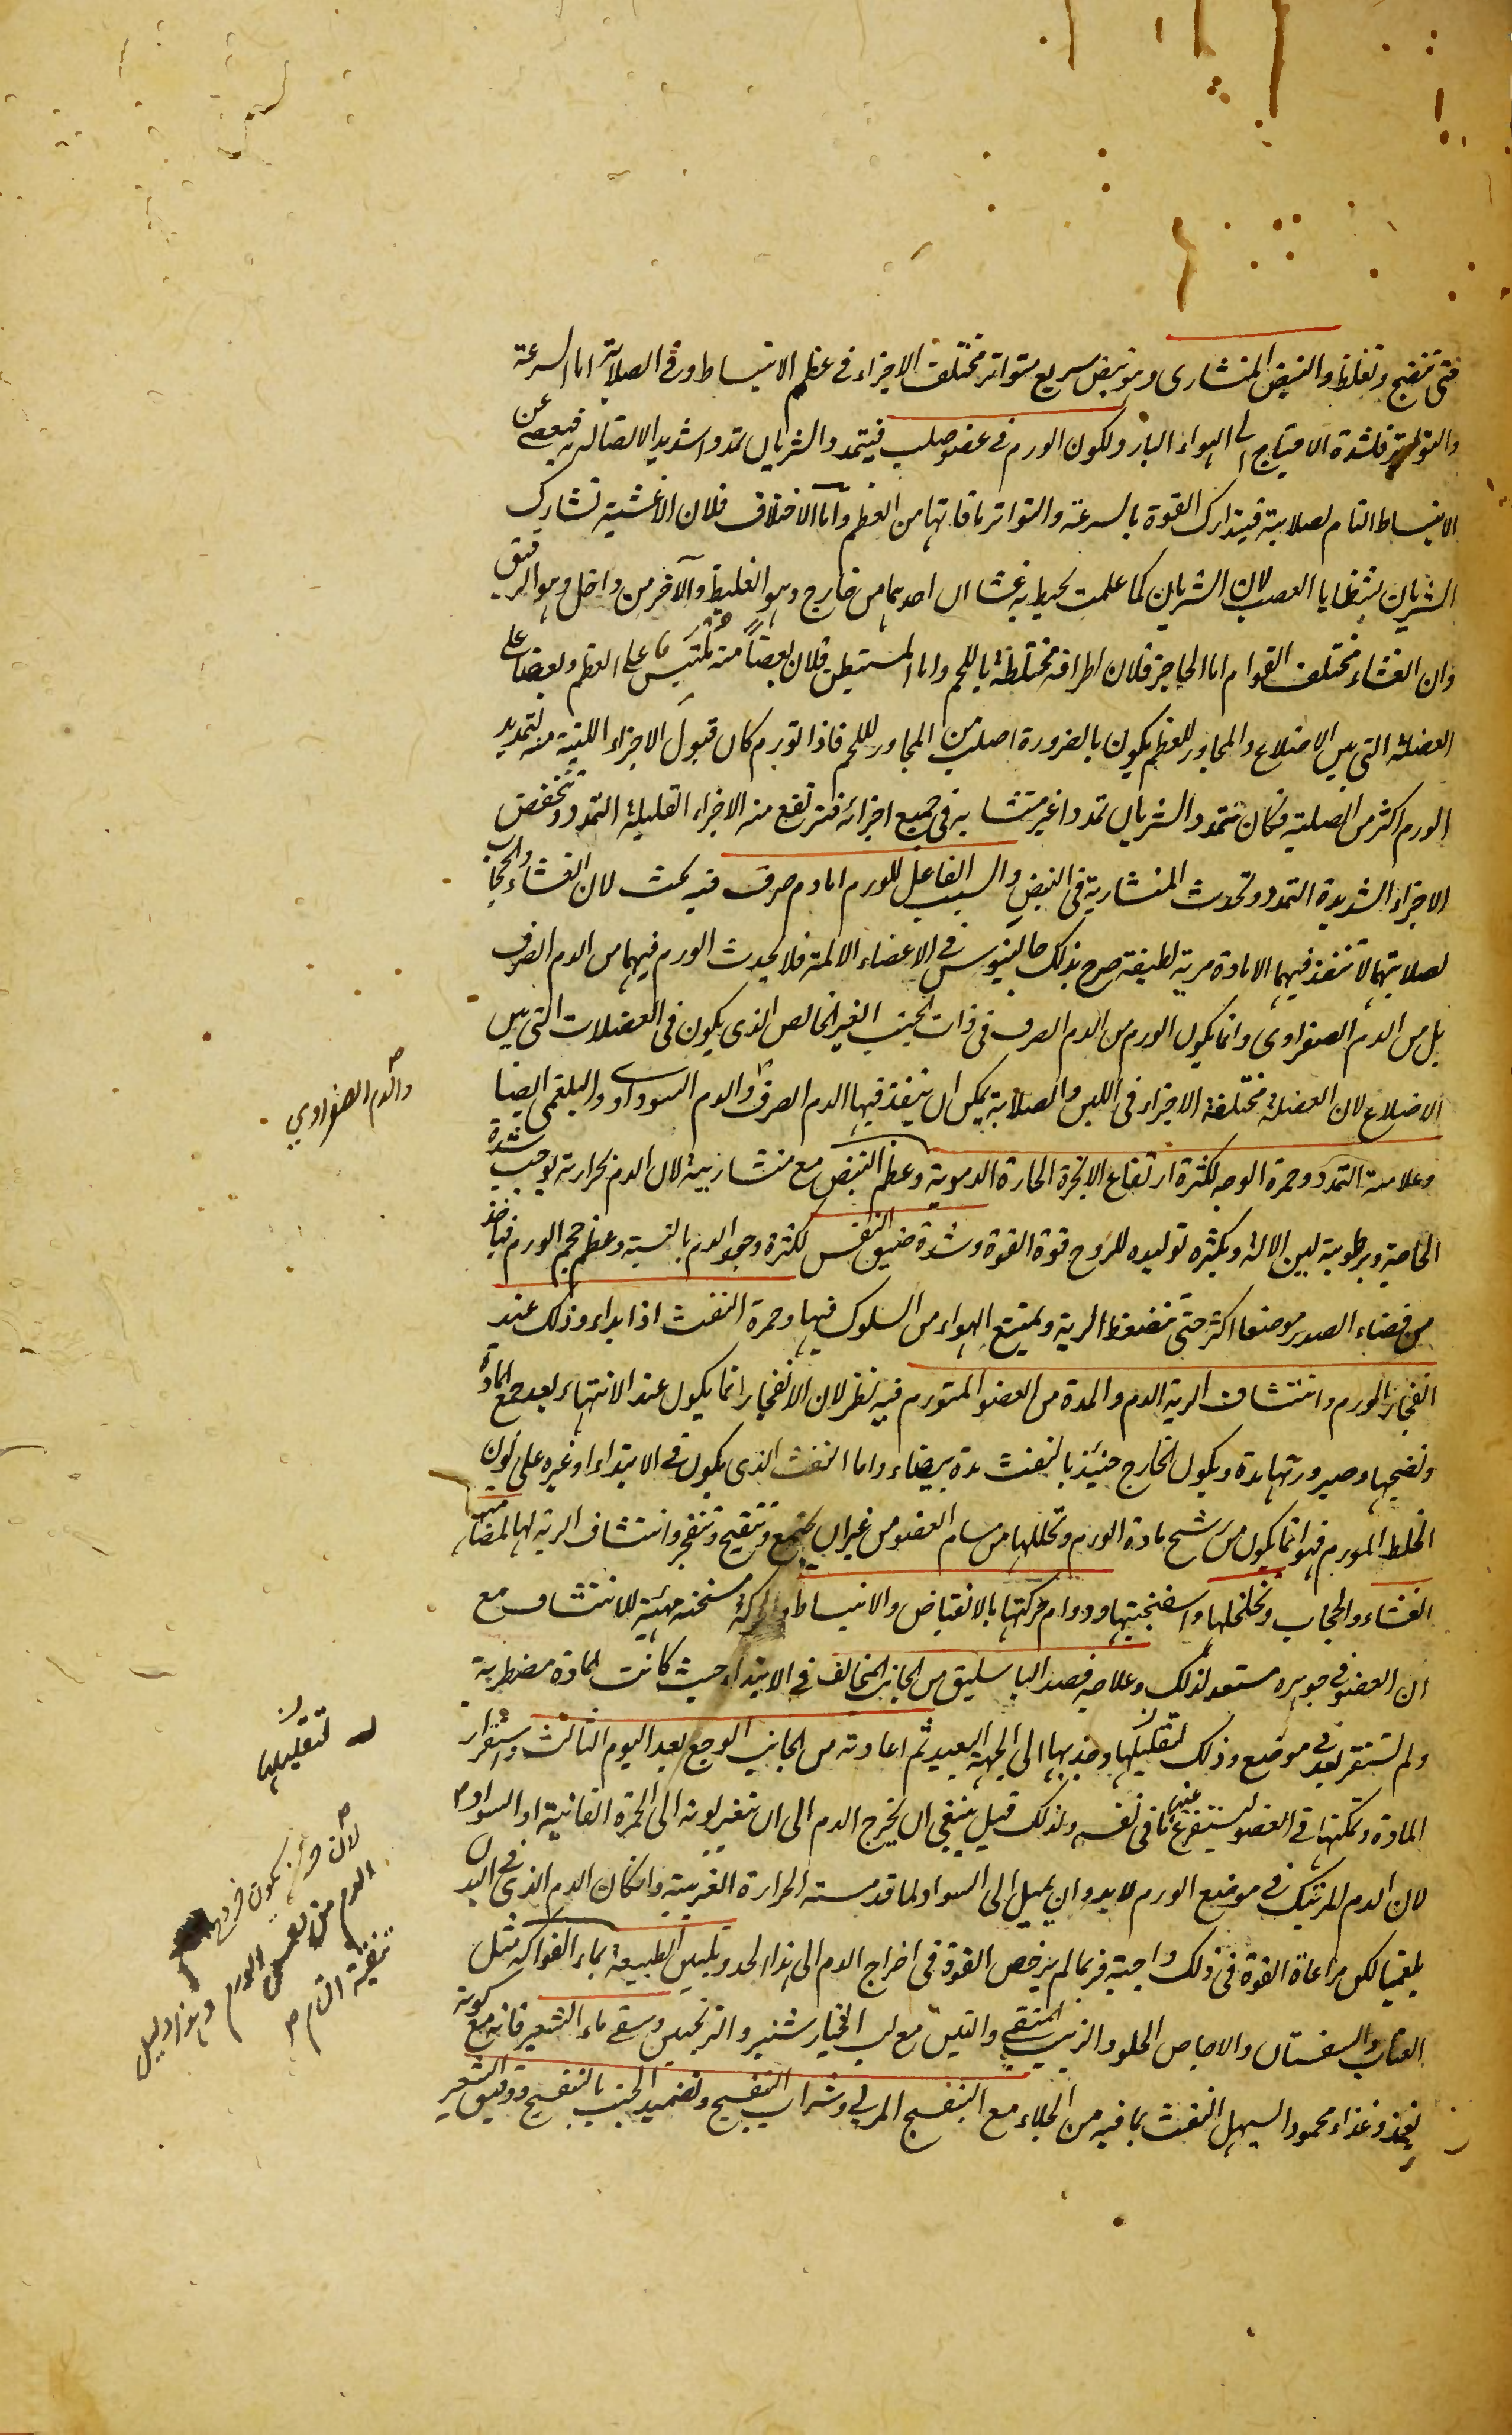 حتى تنضج وتغلظ والنبض المنشارى وهو نبض سريع متواتر مختلف الاجزاء فى عظم الانبساط وفى الصلابة اما السرعة
والتواتر فلشدة الاحتياج الى الهواء البارد ولكون الورم فى عضو صلب فيتمدد الشريان تمددا شديدا لاتصاله به فيعصى عن
الانبساط التام لصلابته فيتدارك القوة بالسرعة والتواتر ما فاتها من العظم واما الاختلاف فلان الاغشية تشارك
الشريان بشظايا العصب لان الشريان كما علمت يحيط به غشاان احدهما من خارج وهو الغليظ والآخر من داخل وهو الرقيق
وان الغشاء مختلف القوام اما الحاجز فلان اطرافه مختلطة باللحم واما المستبطن فلان بعضا منه ملتبس على العظم وبعضا على
العضلة التى بين الاضلاع والمجاور للعظم يكون بالضرورة اصلب من المجاور لللحم فاذا تورم كان قبول الاجزاء اللينة منه لتمديد
الورم اكثر من الصلبة فكان تمدد الشريان تمددا غير متشابه فى جميع اجزائه فترتفع منه الاجزاء القليلة التمدد وتنخفض
الاجزاء الشديدة التمدد وتحدث المنشارية فى النبض والسبب الفاعل للورم اما دم صرف فيه بحث لان الغشاء والحجاب
لصلابتهما لا تنفذ فيهما الا مادة مرية لطيفة صرح بذلك جالينوس فى الاعضاء الالمة فلا يحدث الورم فيهما من الدم الصرف
بل من الدم الصفراوى وانما يكون الورم من الدم الصرف فى ذات الجنب الغير الخالص الذى يكون فى العضلات التى بين
الاضلاع لان العضلة مختلفة الاجزاء فى اللين والصلابة يمكن ان ينفذ فيها الدم الصرف والدم السوداوى والبلغمى ايضا
وعلامته التمدد وحمرة الوجه لكثرة ارتفاع الابخرة الحارة الدموية وعظم النبض مع منشاريته لان الدم بحرارته يوجب شدة
الحاجة وبرطوبته لين الالة وبكثرة توليده للروح قوة القوة وشدة ضيق النفس لكثرة وجود الدم بالنسبة وعظم حجم الورم فياخذ
من فضاء الصدر موضعا اكثر حتى تنضغط الرية ويمتنع الهواء من السلوك فيها وحمرة النفث اذا بداء وذلك عند
انفجار الورم وانتشاف الرية الدم والمدة من العضو المتورم فيه نظر لان الانفجار انما يكون عند الانتهاء بعد جمع المادة
ونضجها وصيرورتها مدة ويكون الخارج حينئذ بالنفث مدة بيضاء واما النفث الذى يكون فى الابتداء او غيره على لون
الخلط المورم فهو انما يكون من رشح مادة الورم وتحللها من مسام العضو من غير ان يجتمع وتتقيح وتنفجر وانتشاف الرية لها لمماسها
الغشاء والحجاب وتخلخلها واسفنجيتها ودوام حركتها بالانقباض والانبساط والحركة مسخنة مهيئة للانتشاف مع
ان العضو فى جوهره مستعد لذلك وعلاجه فصد الباسليق من الجانب المخالف فى الابتداء حيث كانت المادة مضطربة
ولم تستقر بعد فى موضع وذلك لتقليلها وجذبها الى الجهة البعيدة ثم اعادته من الجانب الوجع بعد اليوم الثالث واستقرار
المادة وتمكنها فى العضو ليستفرغ عين ما فى نفسه ولذلك قيل ينبغى ان يخرج الدم الى ان يتغير لونه الى الحمرة القانية او السواد
لان الدم المرتبك فى موضع الورم لا بد وان يميل الى السواد لما قد مسته الحرارة الغريبة وان كان الدم الذى فى البدن
بلغميا لكن مراعاة القوة فى ذلك واجبة فربما لم يرخص القوة فى اخراج الدم الى هذا الحد وتليين الطبيعة بماء الفواكه مثل
العناب والسفستان والاجاص الحلو والزبيب المنقى والتين مع لب الخيارشنبر والترنجبين وسقى ماء الشعير فانه مع كونه
يغذو غذاء محمودا يسهل النفث بما فيه من الجلاء مع البنفسج المربى وشراب البنفسج وتضميد الجنب بالبنفسج ودقيق الشعير
والدم الصفراوي
لتقليلها
لان يكون خروج
الدم من نفس الورم وهذا دليل
تنقية التام